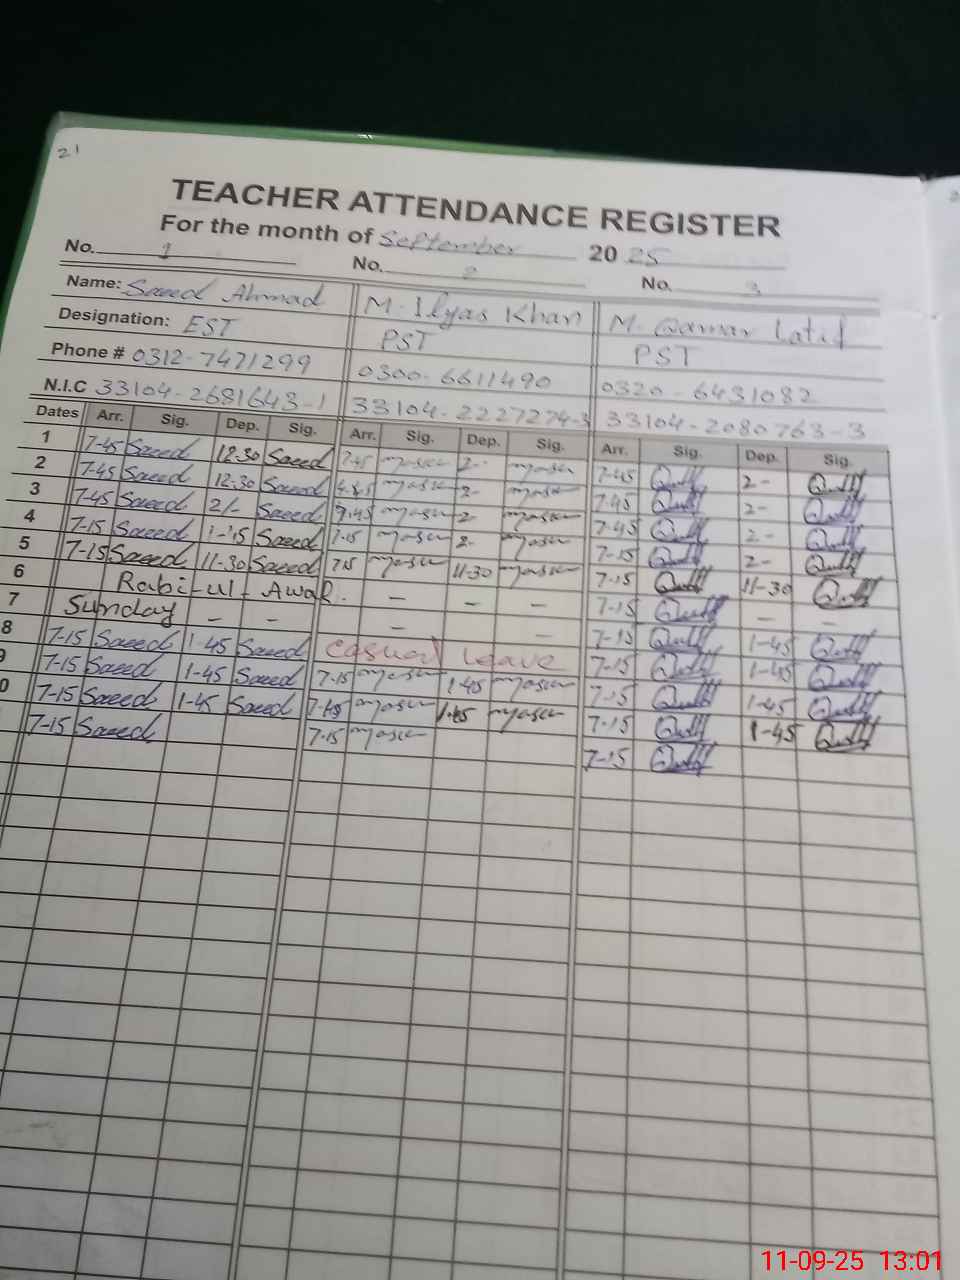 21
TEACHER ATTENDANCE REGISTER
For the month of September 2025
No. 1 No. 2 No. 3
Name: Saeed Ahmad M. Ilyas Khan M. Qamar Latif
Designation: EST PST PST
Phone # 0312-7471299 0300-6611490 0320-6431082
N.I.C 33104-2681643-1 33104-2227274-3 33104-2080763-3
Dates Arr. Sig. Dep. Sig. Arr. Sig. Dep. Sig. Arr. Sig. Dep. Sig.
1 7-45 Saeed 12-30 Saeed 7-45 2- 7-45 2-
2 7-45 Saeed 12-30 Saeed 2- 7-45 2-
3 7-45 Saeed 2/- Saeed 7-45 2 7-45 2-
4 7-15 Saeed 1-15 Saeed 7-15 2- 7-15 2-
5 7-15 Saeed 11-30 Saeed 7-15 11-30 7-15 11-30
6 Rabi-ul-Awal. - - - 7-15 - -
7 Sunday - - - - 7-15 1-45
8 7-15 Saeed 1-45 Saeed Casual Leave 7-15 1-45
9 7-15 Saeed 1-45 Saeed 7-15 1-45 7-15 1-45
0 7-15 Saeed 1-45 Saeed 1-45 7-15 1-45
7-15 Saeed 7-15 7-15
11-09-25 13:01